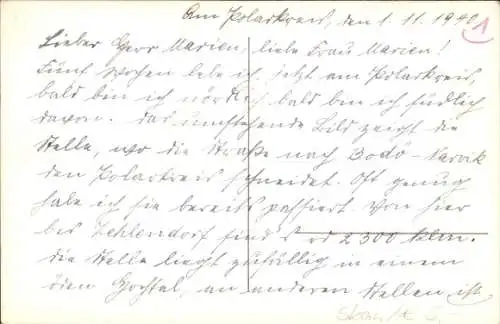 Am Polarkreis, den 1. 11. 1940.
1
Lieber Herr Marien, liebe Frau Marien!
Fünf Wochen lebe ich jetzt am Polarkreis,
bald bin ich nördlich bald bin ich südlich
davon. Das umstehende Bild zeigt die
Stelle, wo die Straße nach Bodö-Narvik
den Polarkreis schneidet. Oft genug
habe ich sie bereits passiert. Von hier
bis Zehlendorf sind's rd 2300 klm.
Die Stelle liegt zufällig in einem
öden Hochtal, an anderen Stellen ist